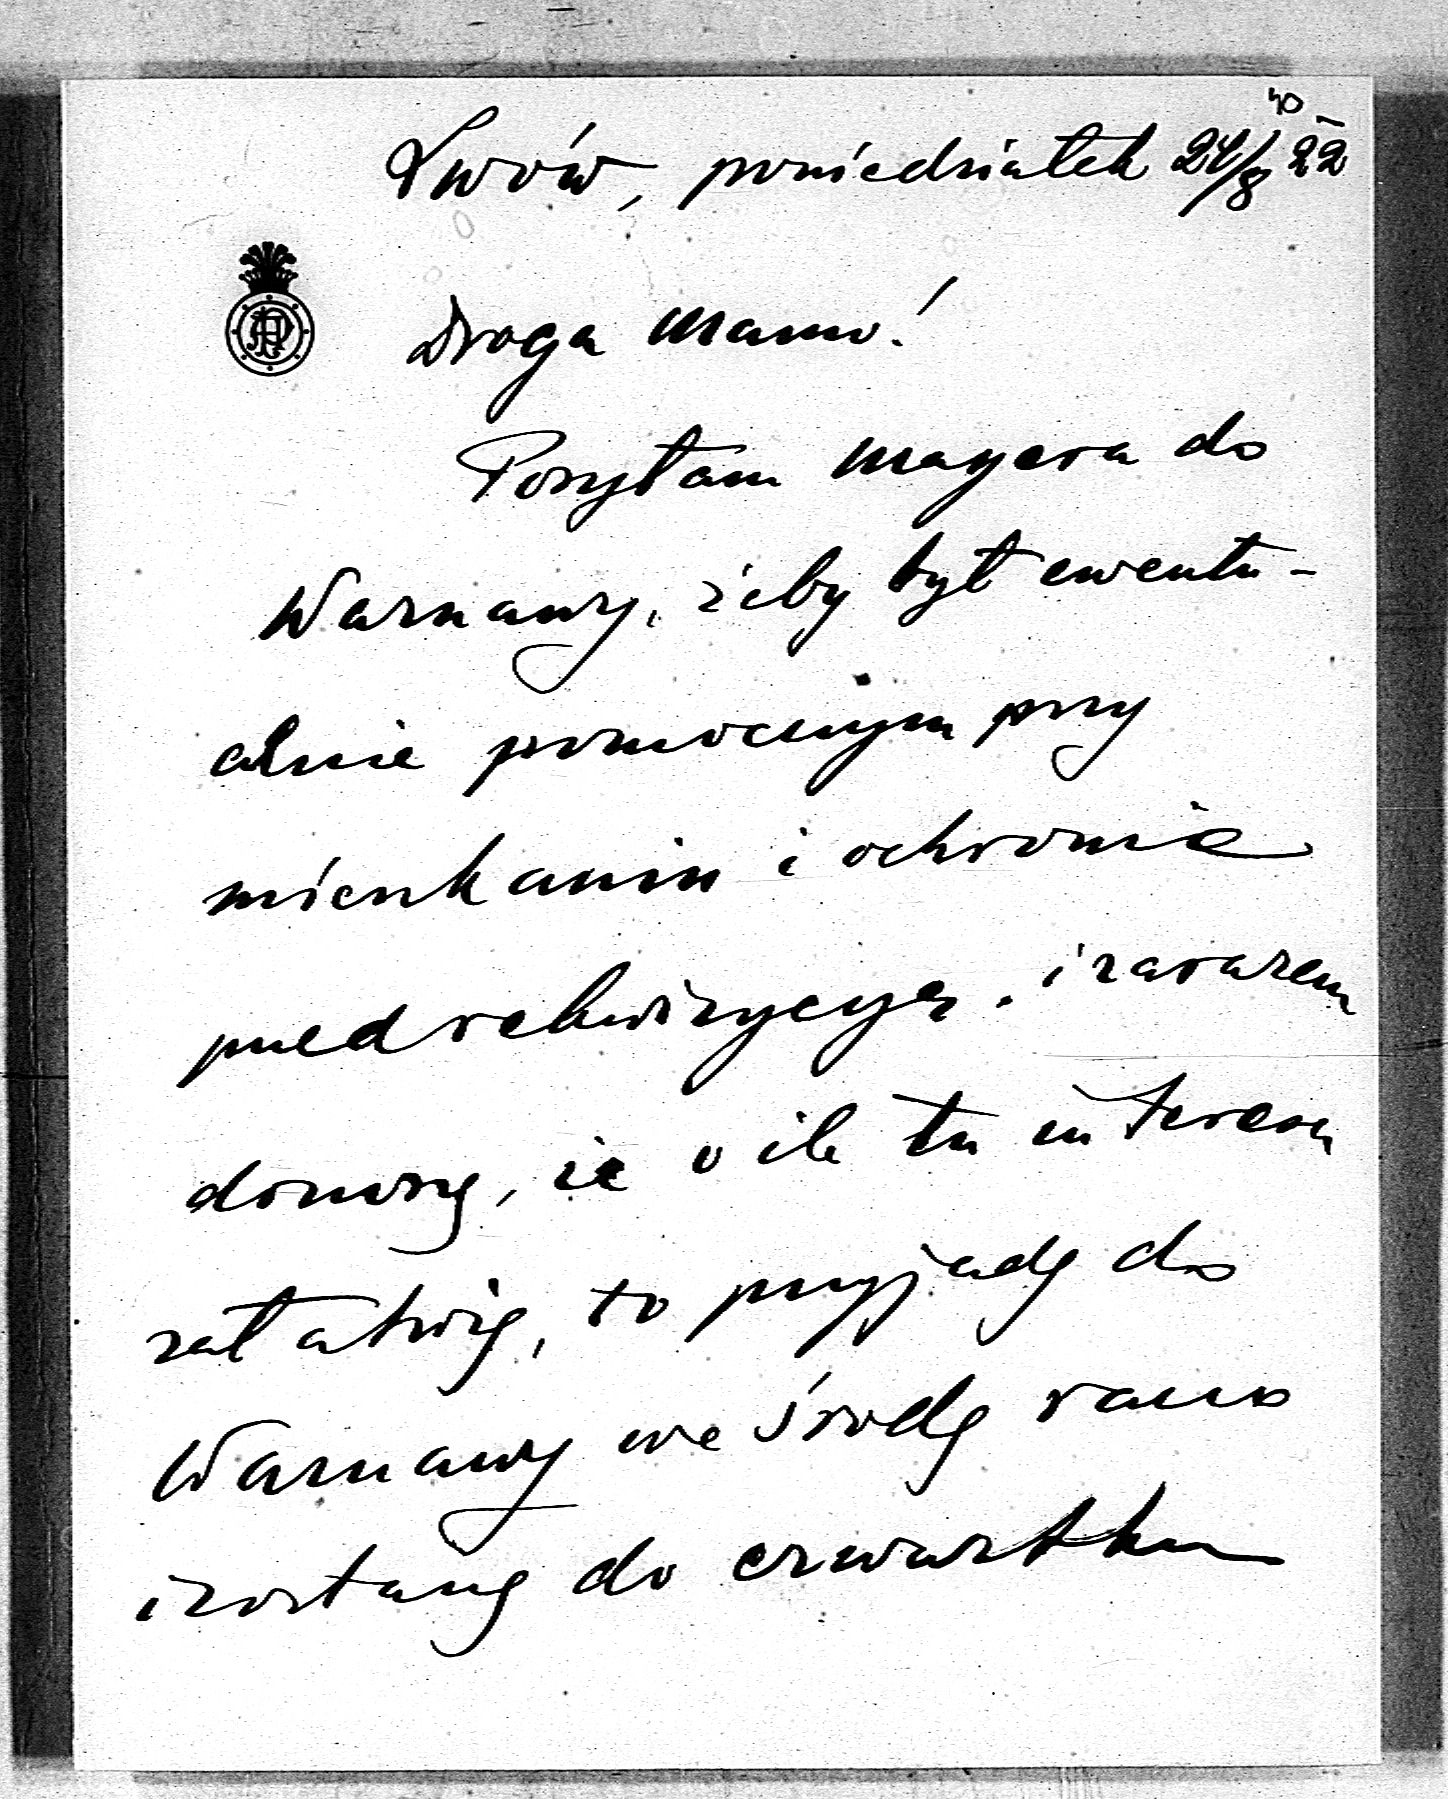 Lwów, poniedziałek 21/8 22
40
Droga Mamo!
Posyłam Mayera do
Warszawy, żeby był ewentu-
alnie pomocnym przy
mieszkaniu i ochronie
przed rekwizycyą. i zarazem
donoszę, że o ile tu interesa
załatwię, to przyjadę do
Warszawy we środę rano
i zostanę do czwartku